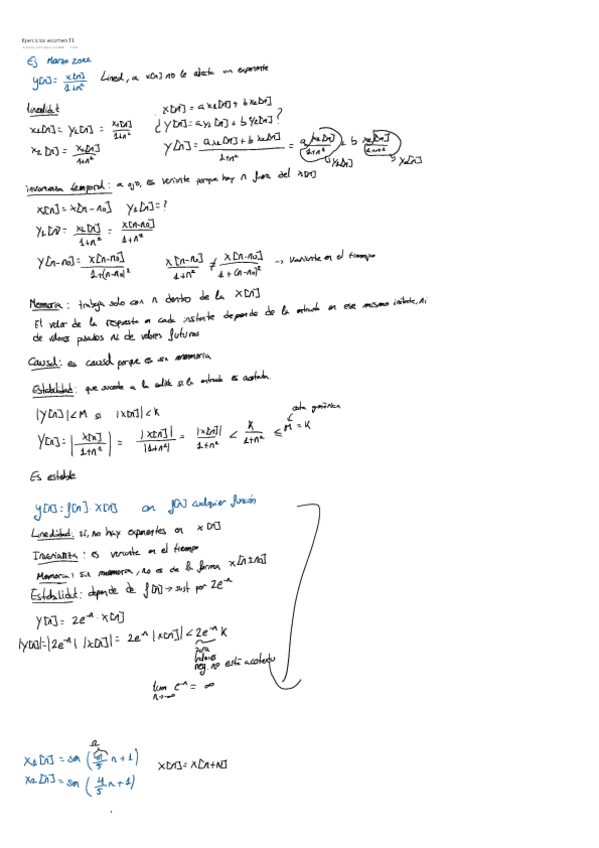 Ejercicios examen T1
Ej Marzo 2022
y[n] = x[n] / 1+n² Lineal, a x[n] no le afecta un exponente
Linealidad x[n] = a x₁[n] + b x₂[n]
x₁[n] = y₁[n] = x₁[n] / 1+n² ¿ y[n] = a y₁[n] + b y₂[n] ?
x₂[n] = x₂[n] / 1+n² y[n] = a x₁[n] + b x₂[n] / 1+n² = a x₁[n] / 1+n² + b x₂[n] / 1+n²
y₁[n] y₂[n]
invarianza temporal: a ojo, es variante porque hay n fuera del x[n]
x₁[n] = x[n-n₀] y₁[n] = ?
y₁[n] = x₁[n] / 1+n² = x[n-n₀] / 1+n²
y[n-n₀] = x[n-n₀] / 1+(n-n₀)² x[n-n₀] / 1+n² ≠ x[n-n₀] / 1+(n-n₀)² → variante en el tiempo
Memoria: trabaja solo con n dentro de la x[n]
El valor de la respuesta en cada instante depende de la entrada en ese mismo instante, ni
de valores pasados ni de valores futuros
Causal: es causal porque es sin memoria
Estabilidad: que sucede a la salida si la entrada es acotada.
|y[n]| < M si |x[n]| < K
cota genérica
y[n] = | x[n] / 1+n² | = |x[n]| / |1+n²| = |x[n]| / 1+n² < K / 1+n² ≤ M = K
Es estable
y[n] = f[n] · x[n] con f[n] cualquier función
Linealidad: sí, no hay exponentes en x[n]
Invarianza: es variante en el tiempo
Memoria: sin memoria, no es de la forma x[n±n₀]
Estabilidad: depende de f[n] → sust por 2e⁻ⁿ
y[n] = 2e⁻ⁿ · x[n]
|y[n]| = |2e⁻ⁿ| |x[n]| = 2e⁻ⁿ |x[n]| < 2e⁻ⁿ K
para
valores
neg. no está acotada
lim e⁻ⁿ = ∞
n→-∞
Ω
x₁[n] = sen ( 4π/5 n + 1 ) x[n] = x[n+N]
x₂[n] = sen ( 4/5 n + 1 )